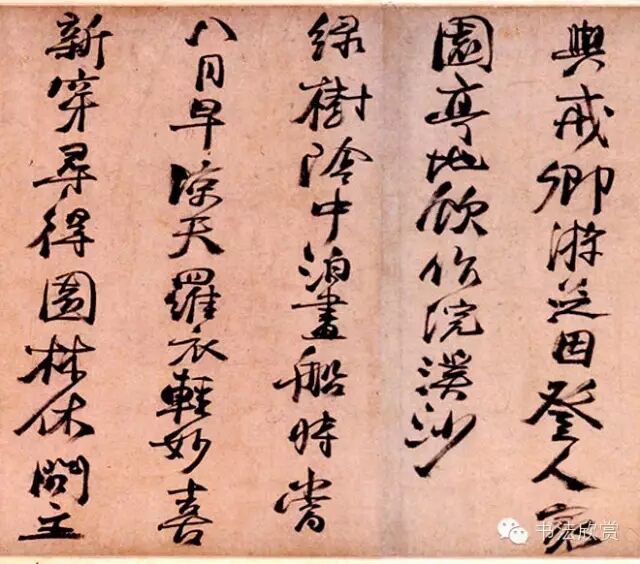 與戒卿游因登人家
園亭地作浣溪沙
綠樹陰中泊畫船時當
八月早涼天羅衣輕妙喜
新穿尋得園林休問主
书法欣赏